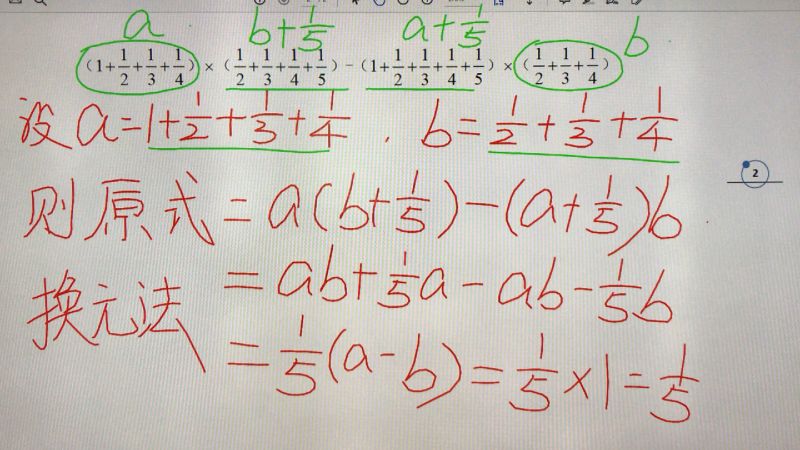 a b+1/5 a+1/5 b
(1+1/2+1/3+1/4)×(1/2+1/3+1/4+1/5)-(1+1/2+1/3+1/4+1/5)×(1/2+1/3+1/4)
设a=1+1/2+1/3+1/4. b=1/2+1/3+1/4
2
则原式=a(b+1/5)-(a+1/5)b
=ab+1/5a-ab-1/5b
换元法
=1/5(a-b)=1/5×1=1/5